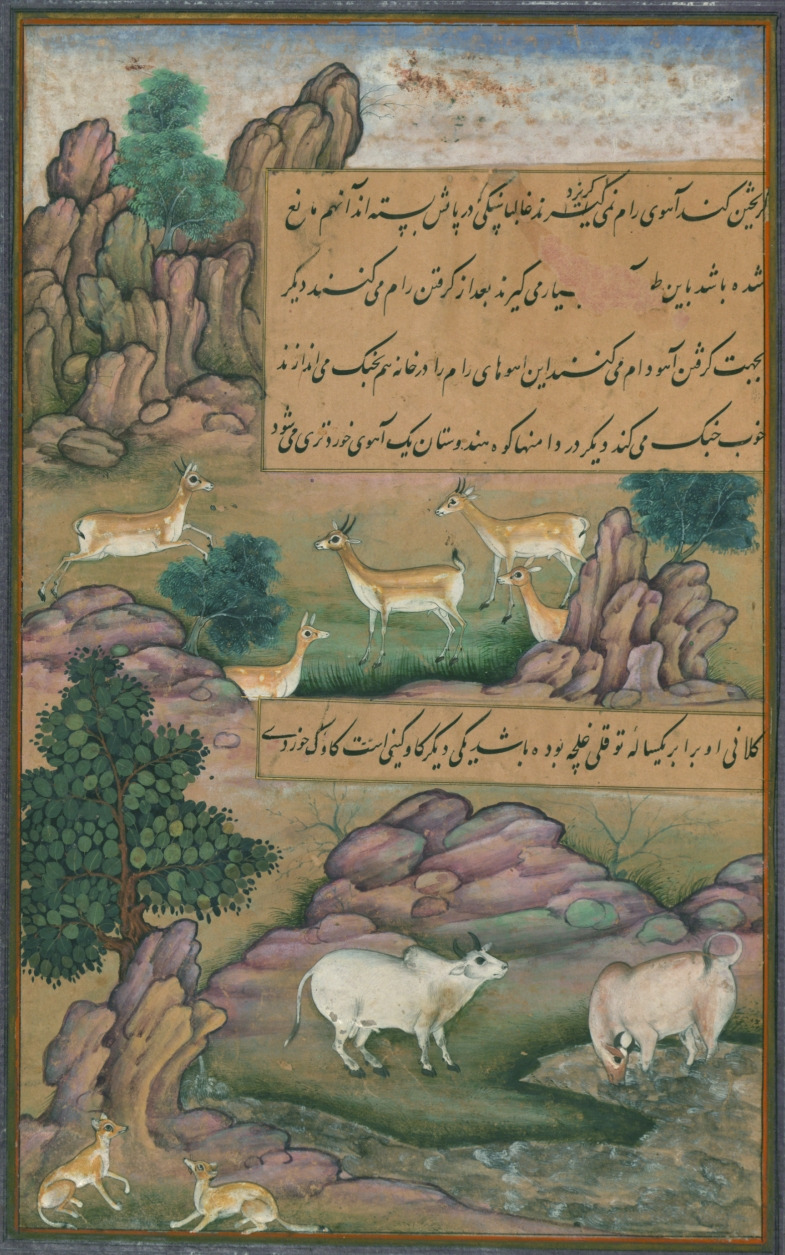 گریختن کند آهوی رام نمی‌گریزد غالبا سنگی در پایش بسته‌اند آنهم مانع
شده باشد باین بسیار می‌گیرند بعد از گرفتن رام می‌کنند دیگر
بجهت گرفتن آهو دام می‌کنند این آهوهای رام را در خانه هم بجنگ می‌اندازند
خوب جنگ می‌کند دیگر در دامنهاء کوه هندوستان یک آهوی خوردتری می‌شود
کلانی او برابر یکساله توقلی غلچه بوده باشد یکی دیگر کاو کینی است کاوک خوردی